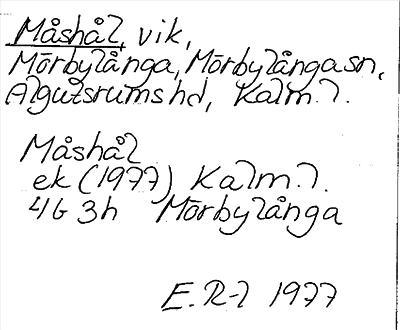 Måshål, vik,
Mörbylånga, Mörbylånga sn,
Algutsrums hd, Kalm. l.
Måshål
ek (1977) Kalm. l.
4G 3h Mörbylånga
E. R-l 1977